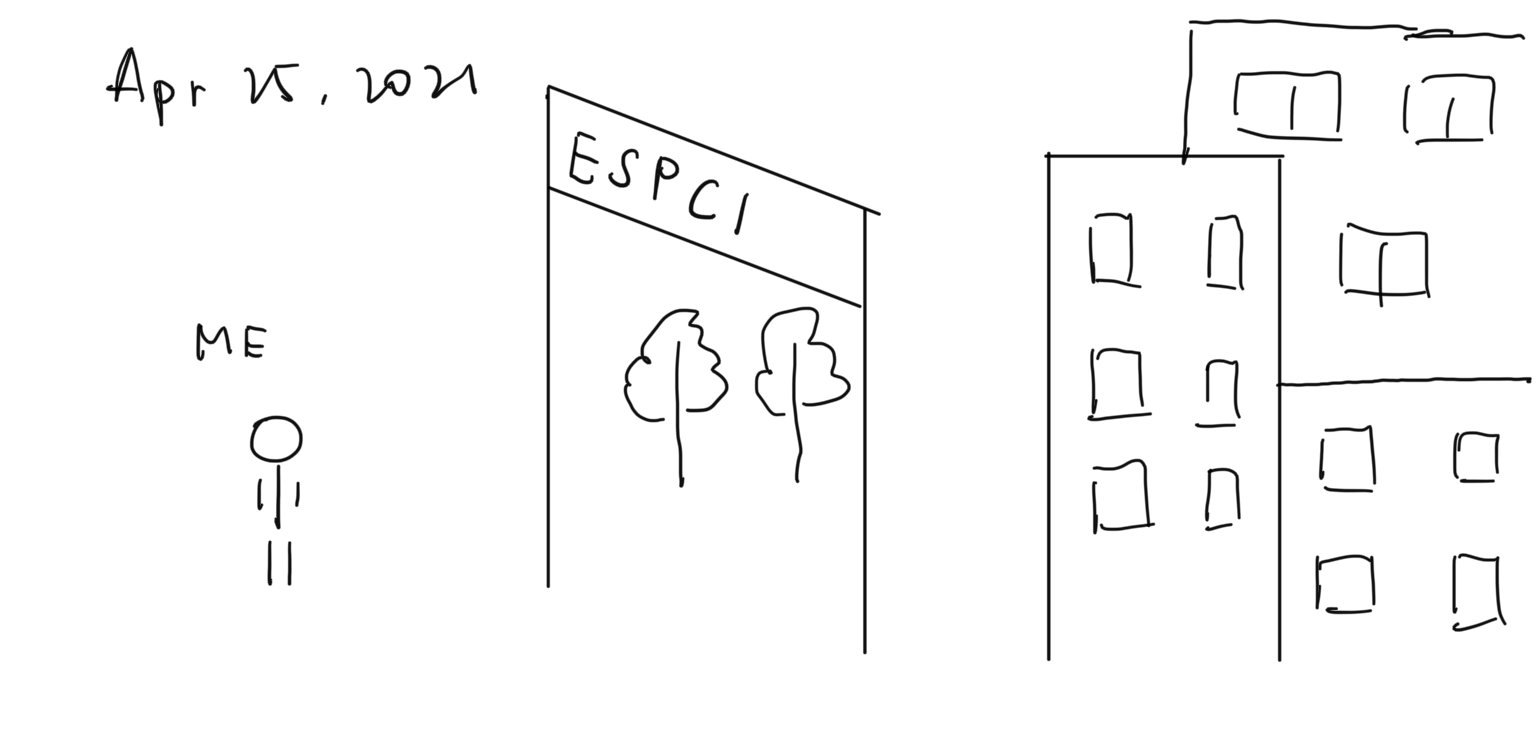 Apr 25, 2021
ESPCI
ME